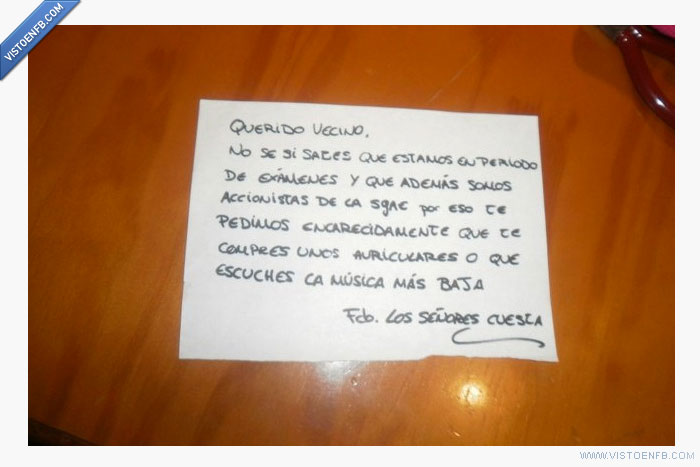 VISTOENFB.COM
QUERIDO VECINO,
NO SE SI SABES QUE ESTAMOS EN PERIODO
DE EXÁMENES Y QUE ADEMÁS SOMOS
ACCIONISTAS DE LA SGAE por ESO TE
PEDIMOS ENCARECIDAMENTE QUE TE
COMPRES UNOS AURICULARES O QUE
ESCUCHES LA MÚSICA MÁS BAJA
Fdo. LOS SEÑORES CUESTA
WWW.VISTOENFB.COM